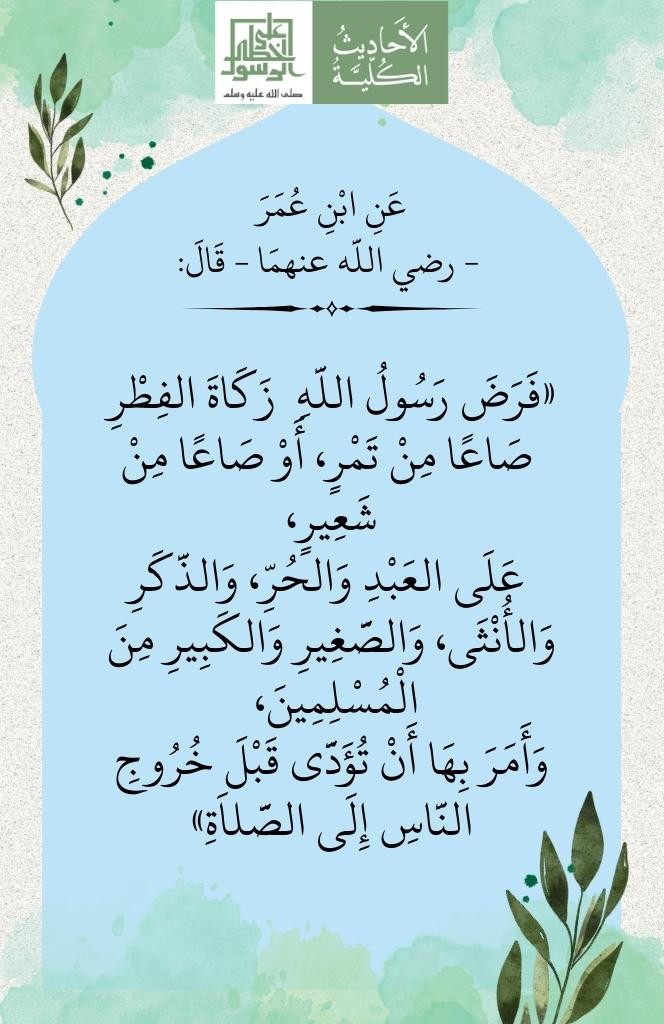 الأَحَادِيثُ
الكُلِّيَّةُ
على
خطى
الرسول
صلى الله عليه وسلم
عَنِ ابْنِ عُمَرَ
- رضي اللّه عنهمَا - قَالَ:
«فَرَضَ رَسُولُ اللّهِ زَكَاةَ الفِطْرِ
صَاعًا مِنْ تَمْرٍ، أَوْ صَاعًا مِنْ
شَعِيرٍ،
عَلَى العَبْدِ وَالحُرِّ، وَالذّكَرِ
وَالأُنْثَى، وَالصّغِيرِ وَالكَبِيرِ مِنَ
الْمُسْلِمِينَ،
وَأَمَرَ بِهَا أَنْ تُؤَدّى قَبْلَ خُرُوجِ
النّاسِ إِلَى الصّلاَةِ»